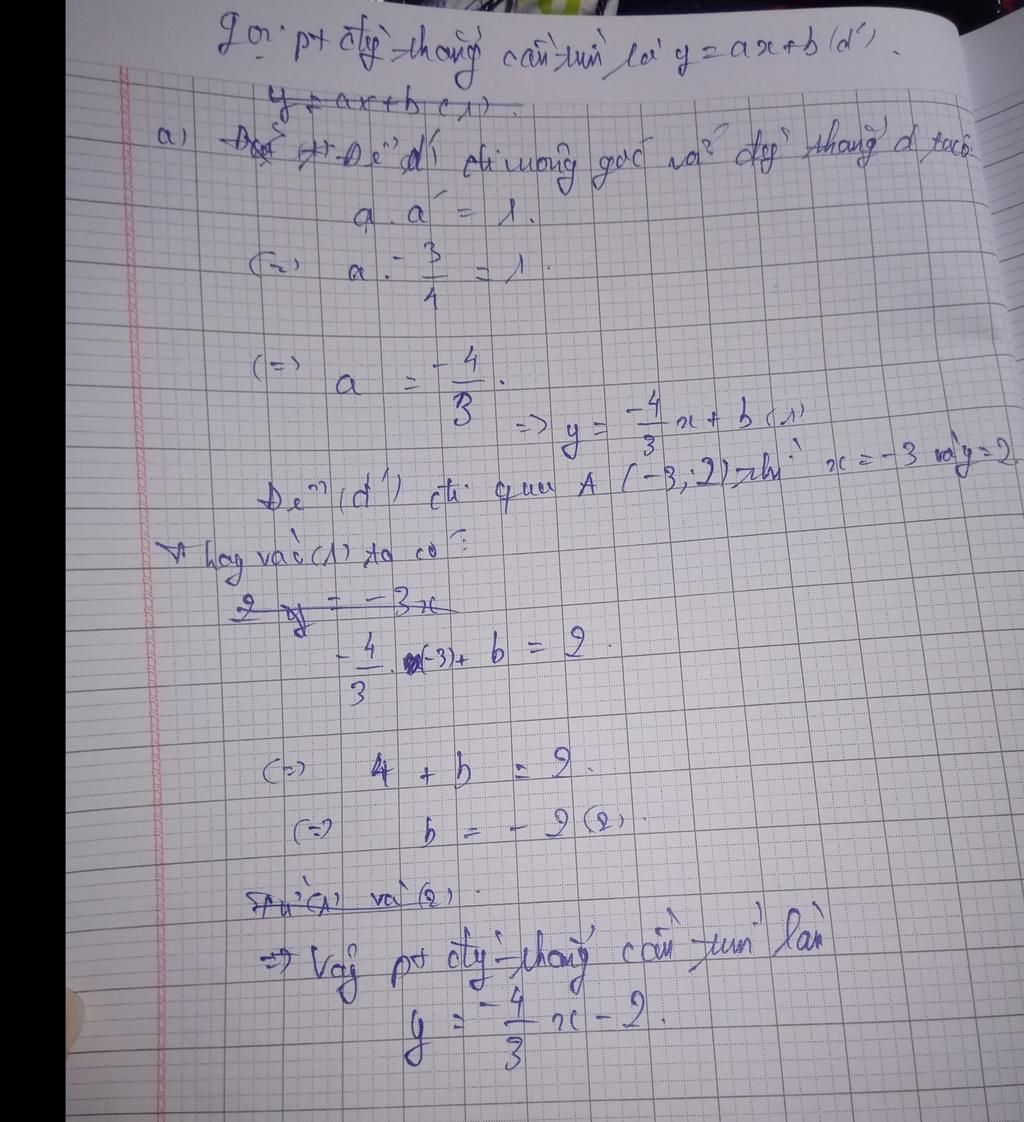 Gọi pt đtg thẳng cần tìm là y = ax + b (d').
y = ax + b (1).
a) Để d' vuông góc với đtg thẳng d ta có
a . a' = 1.
(=) a . -3/4 = 1.
(=) a = -4/3.
=> y = -4/3 x + b (1)
Để (d') đi qua A (-3; 2) thì x = -3 và y = 2
Thay vào (1) ta có:
2 y = -3x
-4/3 . (-3) + b = 2.
(=) 4 + b = 2.
(=) b = -2 (2).
Từ (1) và (2).
=> Vậy pt đtg thẳng cần tìm là
y = -4/3 x - 2.